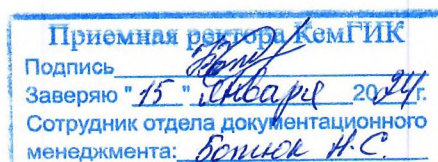 Приемная ректора КемГИК
Подпись
Заверяю "15" января 2024г.
Сотрудник отдела документационного
менеджмента: Н.С.